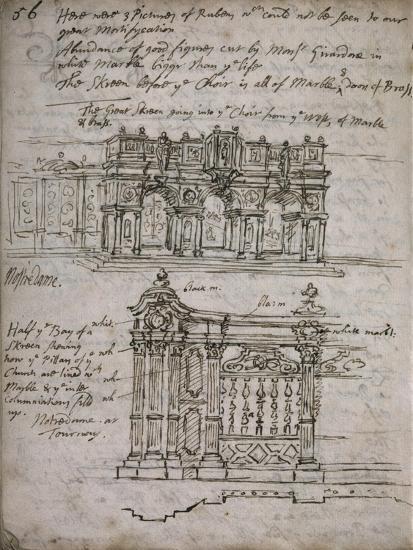 56
Here were 3 Pictures of Ruben wch could not be seen to our
great Mortification
Abundance of good figures cut by Monsr Girardone in
white Marble bigger than ye life
The Skreen before ye Choir is all of Marble & Doors of Brass
The Great Skreen going into ye Choir from ye West, of Marble
& brass.
Nostredame.
black m.
bla: m
white marbl.
Half ye Bay of a
Skreen shewing
how ye Pillars of ye
Church are lined wth
Marble & ye inter
columniations fill'd
up.
Notredame at
Tournay.
whit.
wh
wh
wh